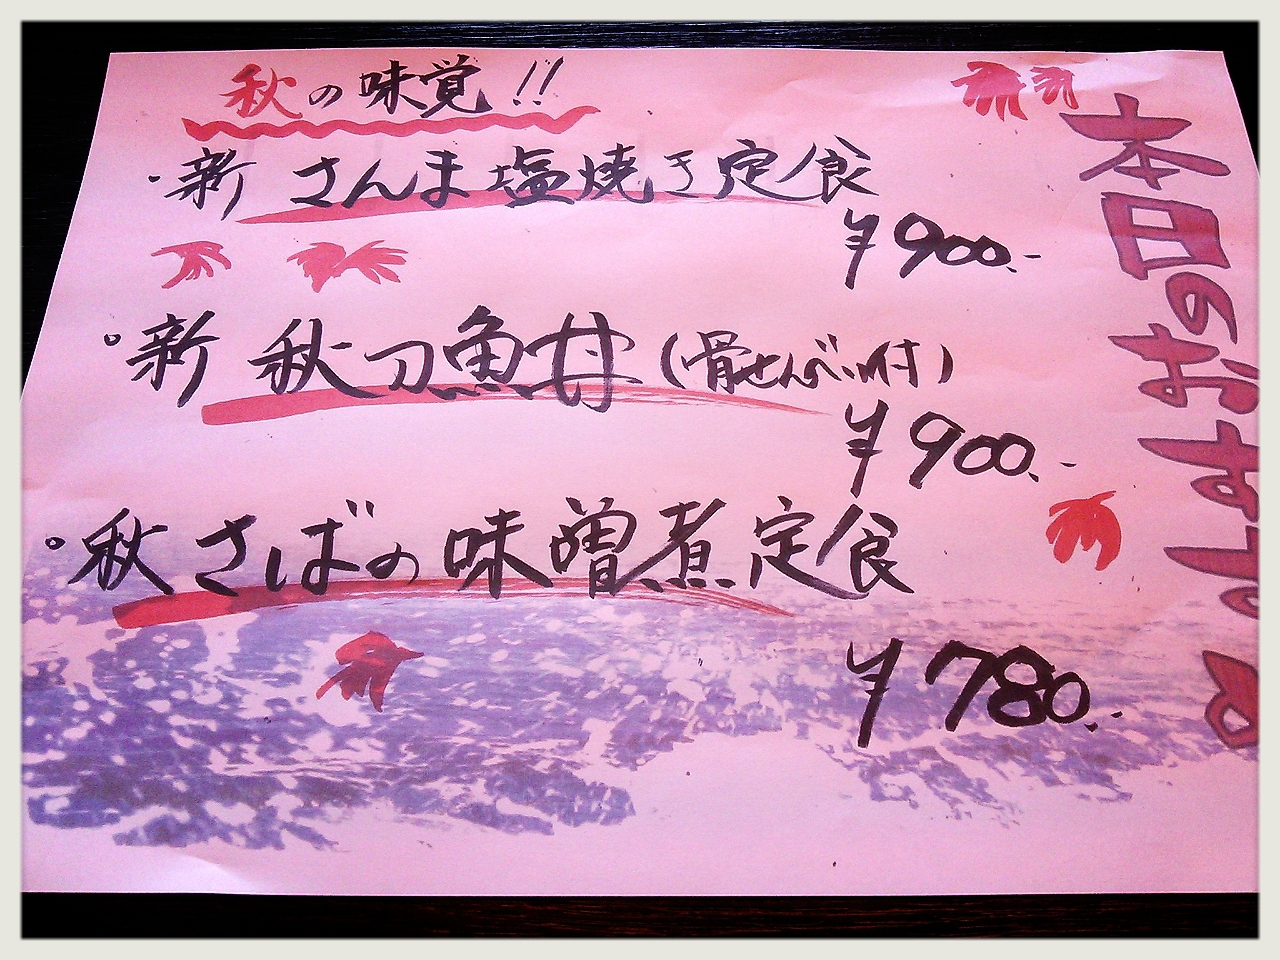 本日のおすすめ
秋の味覚!!
・新 さんま塩焼き定食
¥900.-
。新 秋刀魚丼(骨せんべい付)
¥900.-
。秋さばの味噌煮定食
¥780.-